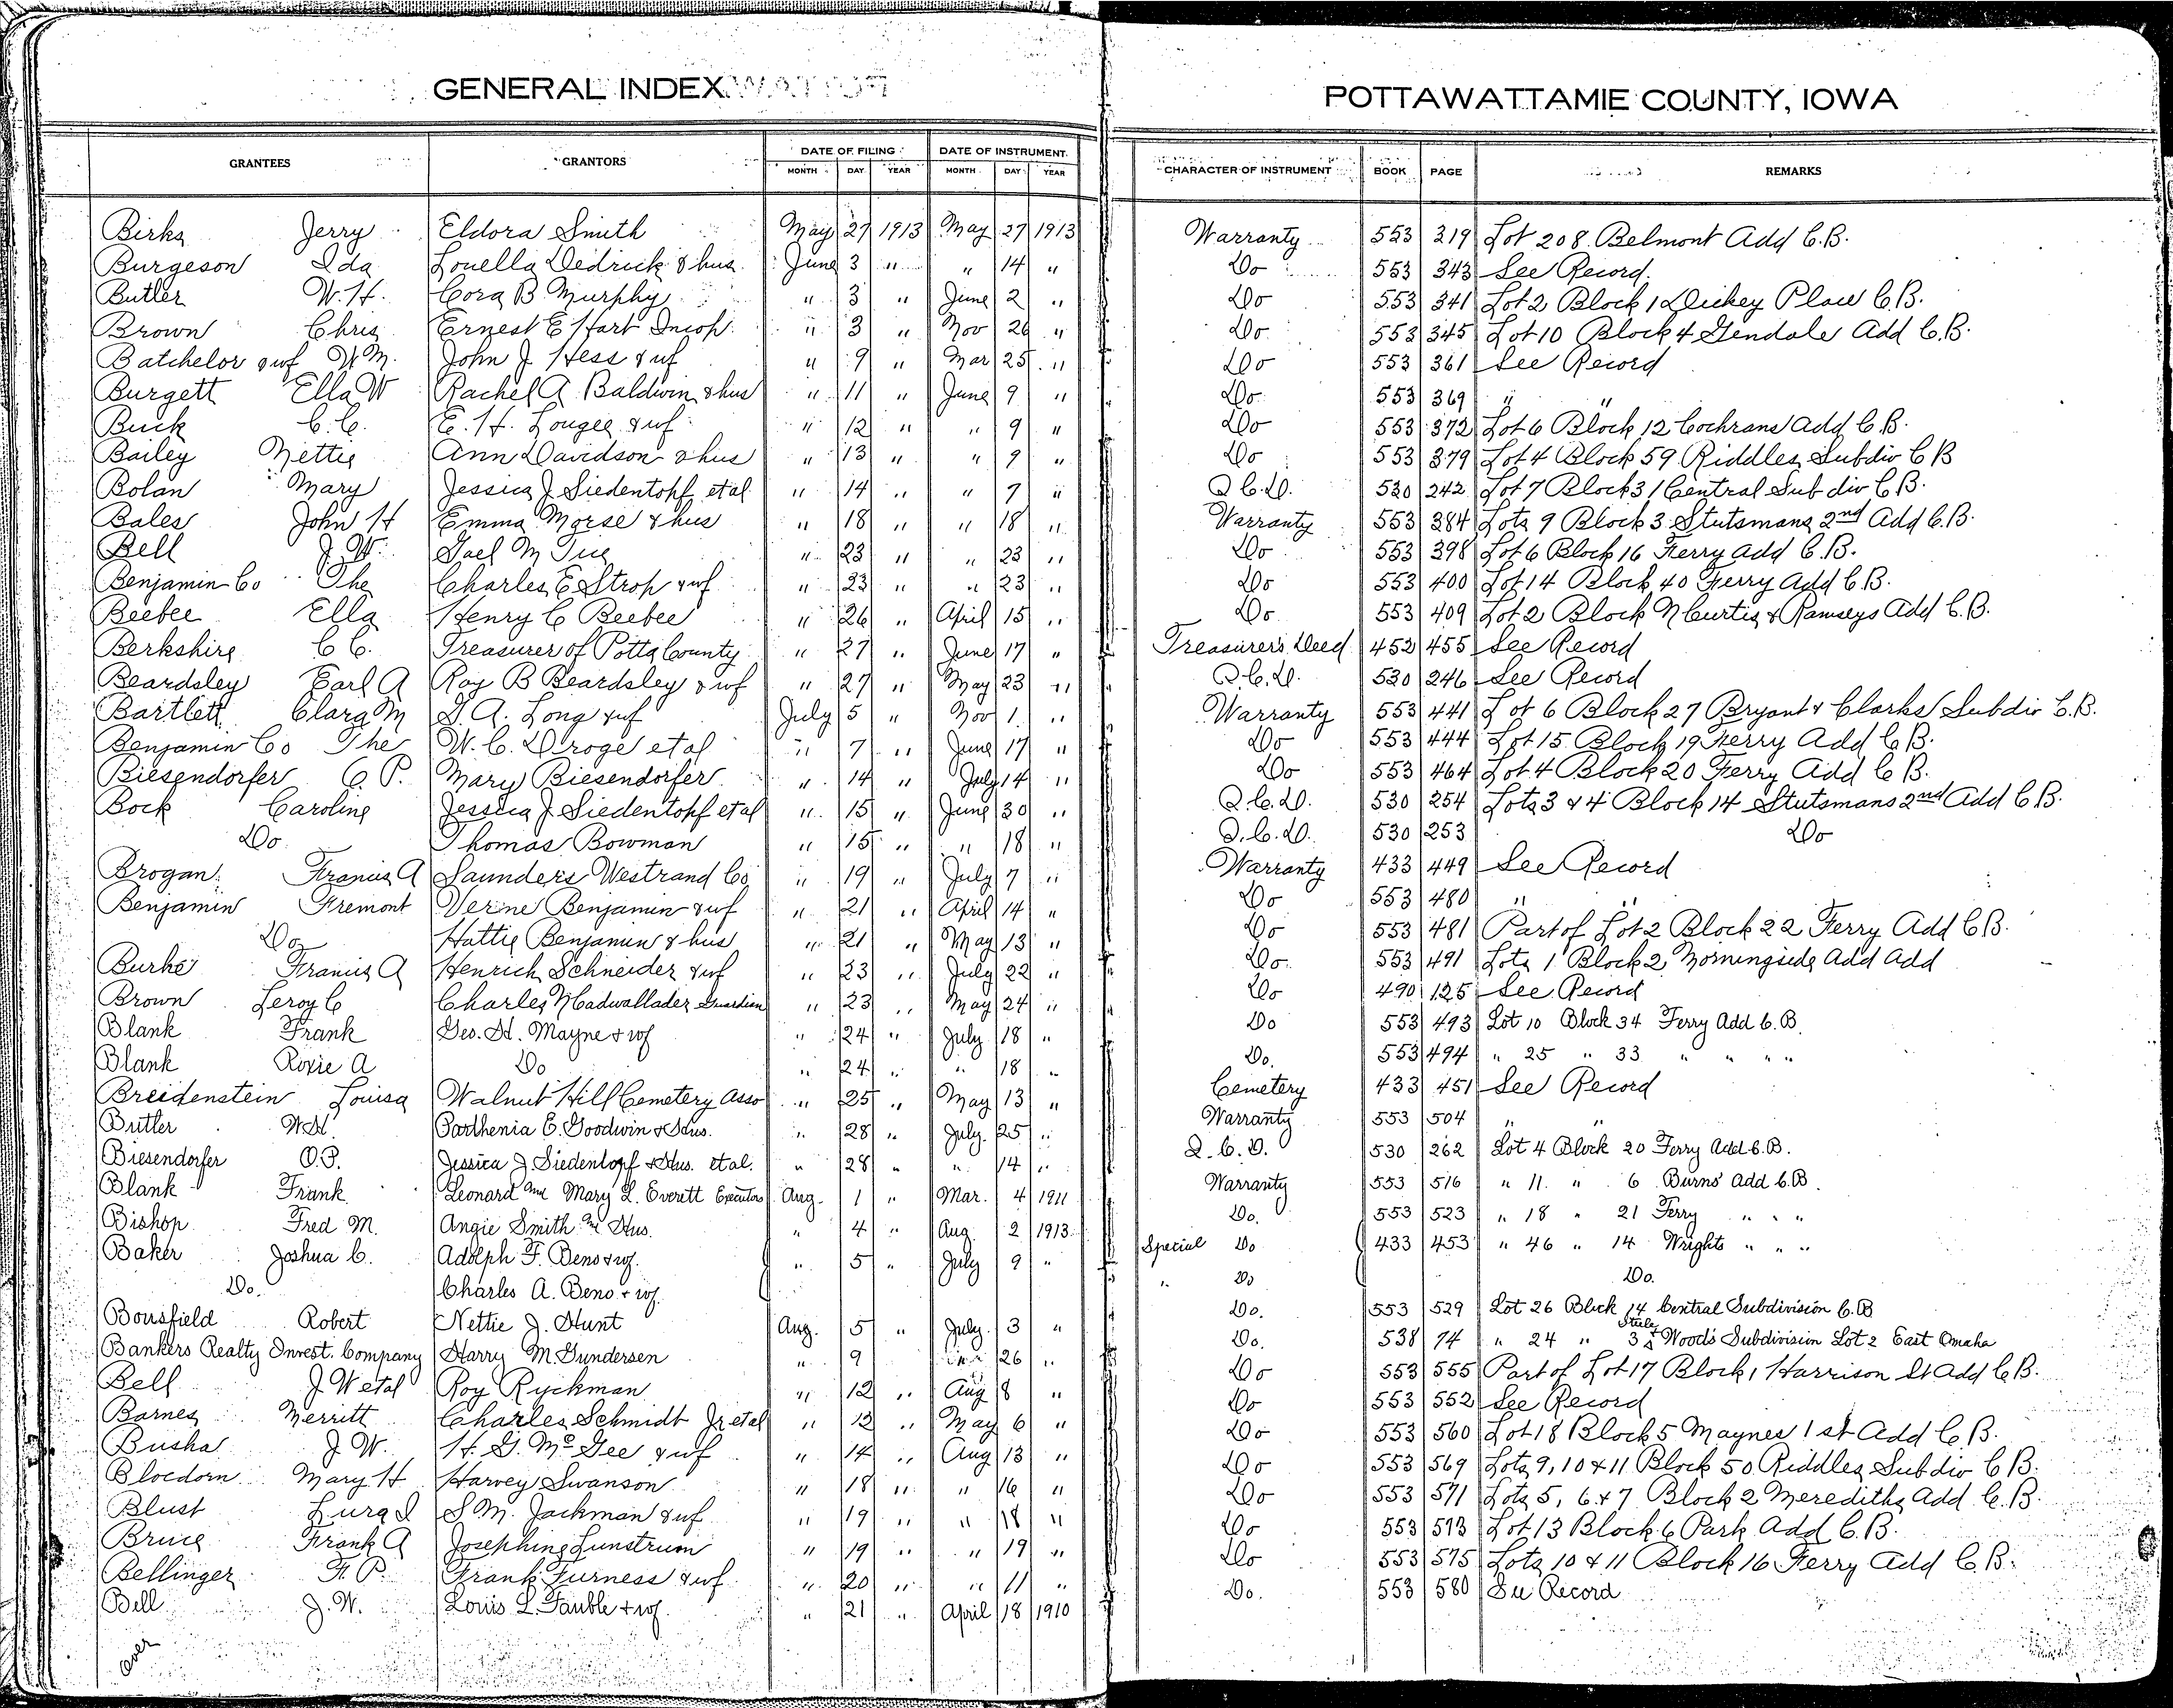 GENERAL INDEX
POTTAWATTAMIE COUNTY, IOWA
GRANTEES GRANTORS DATE OF FILING DATE OF INSTRUMENT CHARACTER OF INSTRUMENT BOOK PAGE REMARKS
MONTH DAY YEAR MONTH DAY YEAR
Birks Jerry Eldora Smith May 27 1913 May 27 1913 Warranty 553 319 Lot 208 Belmont Add C.B.
Burgeson Ida Louella Dedrick & hus June 3 " " 14 " Do 553 343 See Record
Butler W.H. Cora B Murphy " 3 " June 2 " Do 553 341 Lot 2 Block 1 Dickey Place C.B.
Brown Chris Ernest E Hart Incop. " 3 " Nov 26 " Do 553 345 Lot 10 Block 4 Glendale Add C.B.
Batchelor & wf Wm. John J. Hess & wf " 9 " Mar 25 " Do 553 361 See Record
Burgett Ella W Rachel A Baldwin & hus " 11 " June 9 " Do 553 369 " "
Buck C.C. E. H. Lougee & wf " 12 " " 9 " Do 553 372 Lot 6 Block 12 Cochrans Add C.B.
Bailey Nettie Ann Davidson & hus " 13 " " 9 " Do 553 379 Lot 4 Block 59 Riddles Subdiv C B
Bolan Mary Jessica J Siedentopf et al " 14 " " 7 " Q C.D. 530 242 Lot 7 Block 31 Central Sub div C B.
Bales John H Emma Morse & hus " 18 " " 18 " Warranty 553 384 Lots 9 Block 3 Stutsmans 2nd Add C.B.
Bell J. W. Gael M " 23 " " 23 " Do 553 398 Lot 6 Block 16 Ferry Add C.B.
Benjamin Co The Charles E Stroh & wf " 23 " " 23 " Do 553 400 Lot 14 Block 40 Ferry Add C.B.
Beebee Ella Henry C Beebee " 26 " April 15 " Do 553 409 Lot 2 Block N Curtis & Ramseys Add C.B.
Berkshire C C. Treasurer of Potta County " 27 " June 17 " Treasurers Deed 452 455 See Record
Beardsley Earl A Roy B Beardsley & wf " 27 " May 23 " Q.C.D. 530 246 See Record
Bartlett Clara M S. A. Long & wf July 5 " Nov 1 " Warranty 553 441 Lot 6 Block 27 Bryant & Clarks Subdiv C.B.
Benjamin Co The W. C. Droge et al " 7 " June 17 " Do 553 444 Lot 15 Block 19 Ferry Add C B.
Biesendorfer O. P. Mary Biesendorfer " 14 " July 14 " Do 553 464 Lot 4 Block 20 Ferry Add C B.
Bock Caroline Jessica J Siedentopf et al " 15 " June 30 " Q.C.D. 530 254 Lots 3 & 4 Block 14 Stutsmans 2nd Add C B.
Do Thomas Bowman " 15 " " 18 " Q.C.D. 530 253 Do
Brogan Francis A Saunders Westrand Co " 19 " July 7 " Warranty 433 449 See Record
Benjamin Fremont Verne Benjamin & wf " 21 " April 14 " Do 553 480 " "
Do Hattie Benjamin & hus " 21 " May 13 " Do 553 481 Part of Lot 2 Block 22 Ferry Add C B.
Burke Francis A Henrich Schneider & wf " 23 " July 22 " Do 553 491 Lots 1 Block 2 Morningside Add Add
Brown Leroy C Charles N Cadwallader Guardian " 23 " May 24 " Do 490 125 See Record
Blank Frank Geo. H. Mayne & wf " 24 " July 18 " Do 553 493 Lot 10 Block 34 Ferry Add C.B.
Blank Roxie A Do " 24 " " 18 " Do. 553 494 " 25 " 33 " " " "
Breidenstein Louisa Walnut Hill Cemetery Asso " 25 " May 13 " Cemetery 433 451 See Record
Butler W.H. Parthenia E. Goodwin & Hus. " 28 " July 25 " Warranty 553 504 " "
Biesendorfer O.P. Jessica J Siedentopf & Hus. et al. " 28 " " 14 " Q.C.D. 530 262 Lot 4 Block 20 Ferry Add C.B.
Blank Frank Leonard and Mary L. Everett Executors Aug. 1 " Mar. 4 1911 Warranty 553 516 " 11 " 6 Burns' Add C.B.
Bishop Fred M. Angie Smith and Hus. " 4 " Aug 2 1913 Do. 553 523 " 18 " 21 Ferry " " "
Baker Joshua C. Adolph F. Beno & wf. " 5 " July 9 " Special Do 433 453 " 46 " 14 Wrights " " "
Do. Charles A. Beno & wf. " Do Do.
Bousfield Robert Nettie J. Hunt Aug. 5 " July 3 " Do. 553 529 Lot 26 Block 14 Central Subdivision C.B
Bankers Realty Invest. Company Harry M. Gundersen " 9 " 26 " Do. 538 74 " 24 " 3 Steele & Wood's Subdivision Lot 2 East Omaha
Bell J W et al Roy Ryckman " 12 " Aug 8 " Do 553 555 Part of Lot 17 Block 1 Harrison St Add C B.
Barnes Merritt Charles Schmidt Jr et al " 12 " May 6 " Do 553 552 See Record
Busha J. W. H. G. McGee & wf " 14 " Aug 13 " Do 553 560 Lot 18 Block 5 Maynes 1st Add C.B.
Bloedorn Mary H Harvey Swanson " 18 " " 16 " Do 553 569 Lots 9, 10 & 11 Block 50 Riddles Subdiv C B.
Blust Lura I S. M. Jackman & wf " 19 " " 18 " Do 553 571 Lots 5, 6 & 7 Block 2 Merediths Add C.B.
Bruce Frank A Josephine Lunstrum " 19 " " 19 " Do 553 573 Lot 13 Block 6 Park Add C.B.
Bellinger F. P. Frank Furness & wf " 20 " " 11 " Do 553 575 Lots 10 & 11 Block 16 Ferry Add C B.
Bell J. W. Louis L. Fauble & wf. " 21 " April 18 1910 Do. 553 580 See Record
over